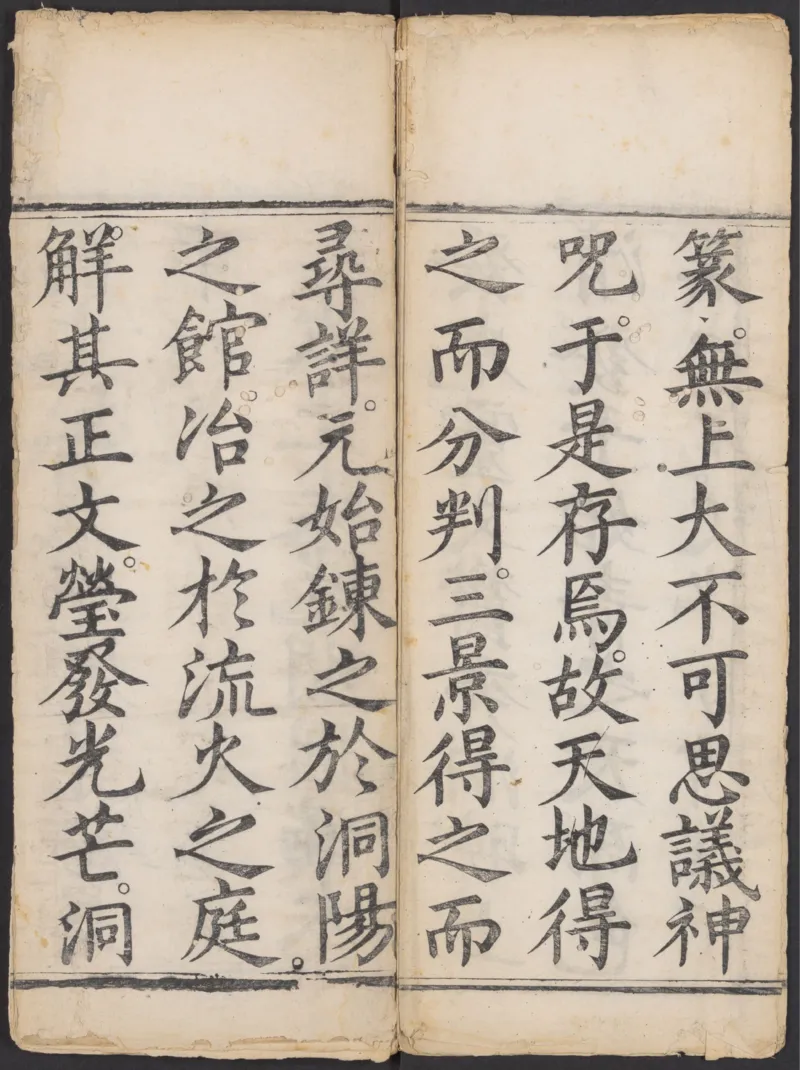 篆。無上大不可思議神
呪。于是存焉。故天地得
之而分判。三景得之而
尋詳。元始鍊之於洞陽
之館。冶之於流火之庭。
觧其正文。瑩發光芒。洞